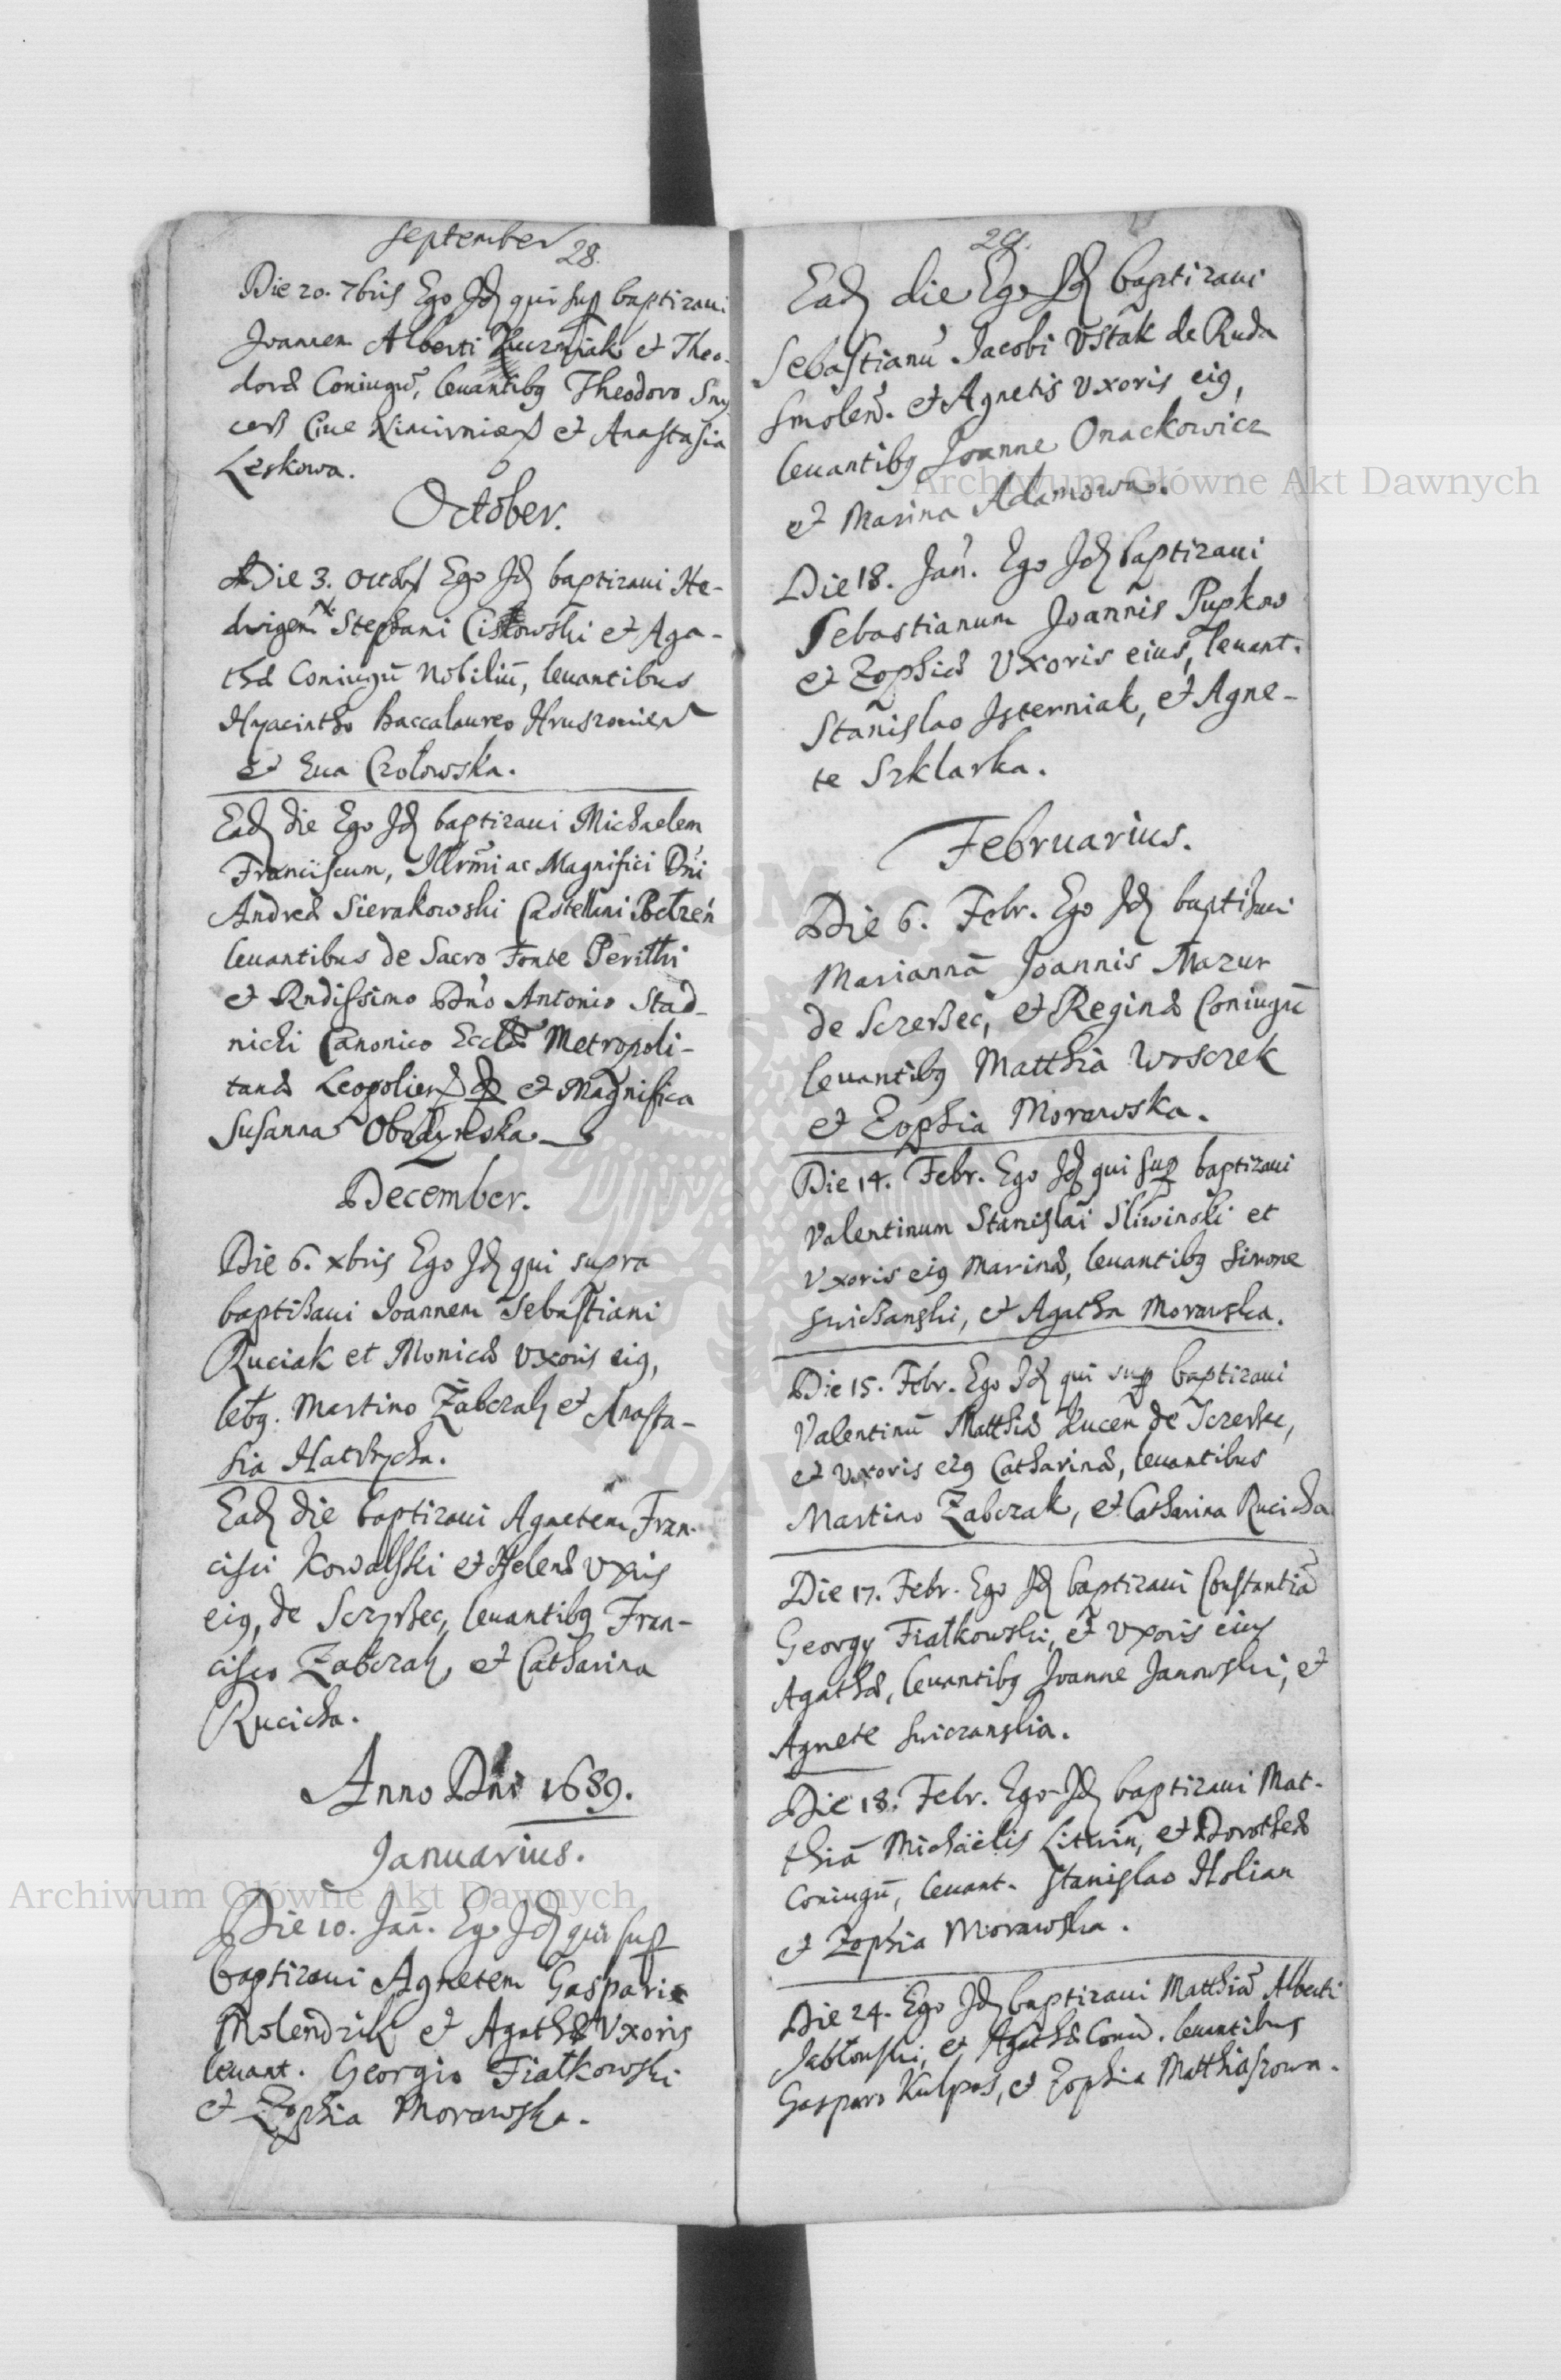 September
28.
Die 20. 7bris Ego Id qui sup baptizaui
Joannem Alberti et Theo-
doræ Coniugũ, leuantibg Theodoro Sny
Ciue et Anastasia
Leskowa.
October.
Die 3. Octobr Ego Id baptizaui He-
dvigem Stephani Cistowski et Aga-
thæ Coniugũ Nobiliũ, leuantibus
Hyacintho Baccalaureo
et Eua Czołowska.
Ead die Ego Id baptizaui Michaelem
Franciscum, Illrm̃i ac Magnifici Dñi
Andreæ Sierakowski Castellani Bełzeń
leuantibus de Sacro Fonte Perilli
et Rndissimo Dño Antonio Stad-
nicki Canonico Eccłæ Metropoli-
tanæ Leopolien et Magnifica
Susanna Obodynska
December.
Die 6. xbris Ego Id qui supra
baptisaui Joannem Sebastiani
Ruciak et Monicæ Vxoris eig,
letg. Martino Zabczak et Anasta-
sia
Ead die baptizaui Agnetem Fran-
cisci Kowalski et Helenæ Vxris
eig, de Sczyrsec, leuantibg Fran-
cisco Zabczak, et Catharina
Rucicha.
Anno Dñi 1689.
Januarius.
Die 10. Jañ. Ego Id qui sup
baptizaui Agnetem Gasparis
Molendzik et Agathæ Vxoris
leuant. Georgio Fiałkowski
et Zophia Morawska.
29.
Ead die Ego Id baptizaui
Sebastianũ Jacobi Vstak de Ruda
Smoleñ. et Agnetis Vxoris eig,
leuantibg Joanne Onackowicz
et Marina Adamowa.
Die 18. Jañ. Ego Id baptizaui
Sebastianum Joannis Pupkow
et Zophiæ Vxoris eius, leuant.
Stanislao Isterniak, et Agne-
te Szklarka.
Februarius.
Die 6. Febr. Ego Id baptisaui
Mariannã Joannis Mazur
de Sczersec, et Reginæ Coniugũ
leuantibg Matthia Wosczek
et Zophia Morawska.
Die 14. Febr. Ego Id qui sup baptizaui
Valentinum Stanislai Sliwinski et
Vxoris eig Marinæ, leuantibg Simone
Swisanski, et Agatha Morawska.
Die 15. Febr. Ego Id qui sup baptizaui
Valentinũ Matthiæ Kucen de Sczersec,
et Vxoris eig Catharinæ, leuantibus
Martino Zabczak, et Catharina Rucicha
Die 17. Febr. Ego Id baptizaui Constantiã
Georgy Fiałkowski, et Vxoris eius
Agathæ, leuantibg Joanne Janowski, et
Agnete Swiczanska.
Die 18. Febr. Ego Id baptizaui Mat-
thiã Michaëlis Litwin, et Dorotheæ
Coniugũ, leuant. Stanislao Holian
et Zophia Morawska.
Die 24. Ego Id baptizaui Matthiã Alberti
Jabłonski, et Agathæ Coniu. leuantibus
Gasparo Kulpas, et Zophia Matthiaszowa.
Archiwum Główne Akt Dawnych
Archiwum Główne Akt Dawnych